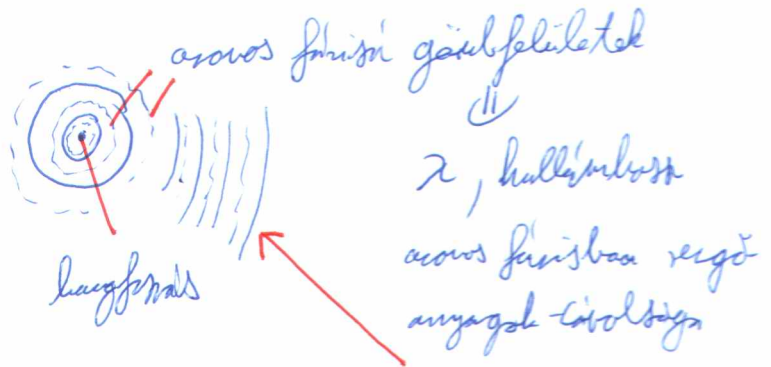 azonos fázisú gömbfelületek
λ, hullámhossz
azonos fázisban rezgő
anyagok távolsága
hangforrás